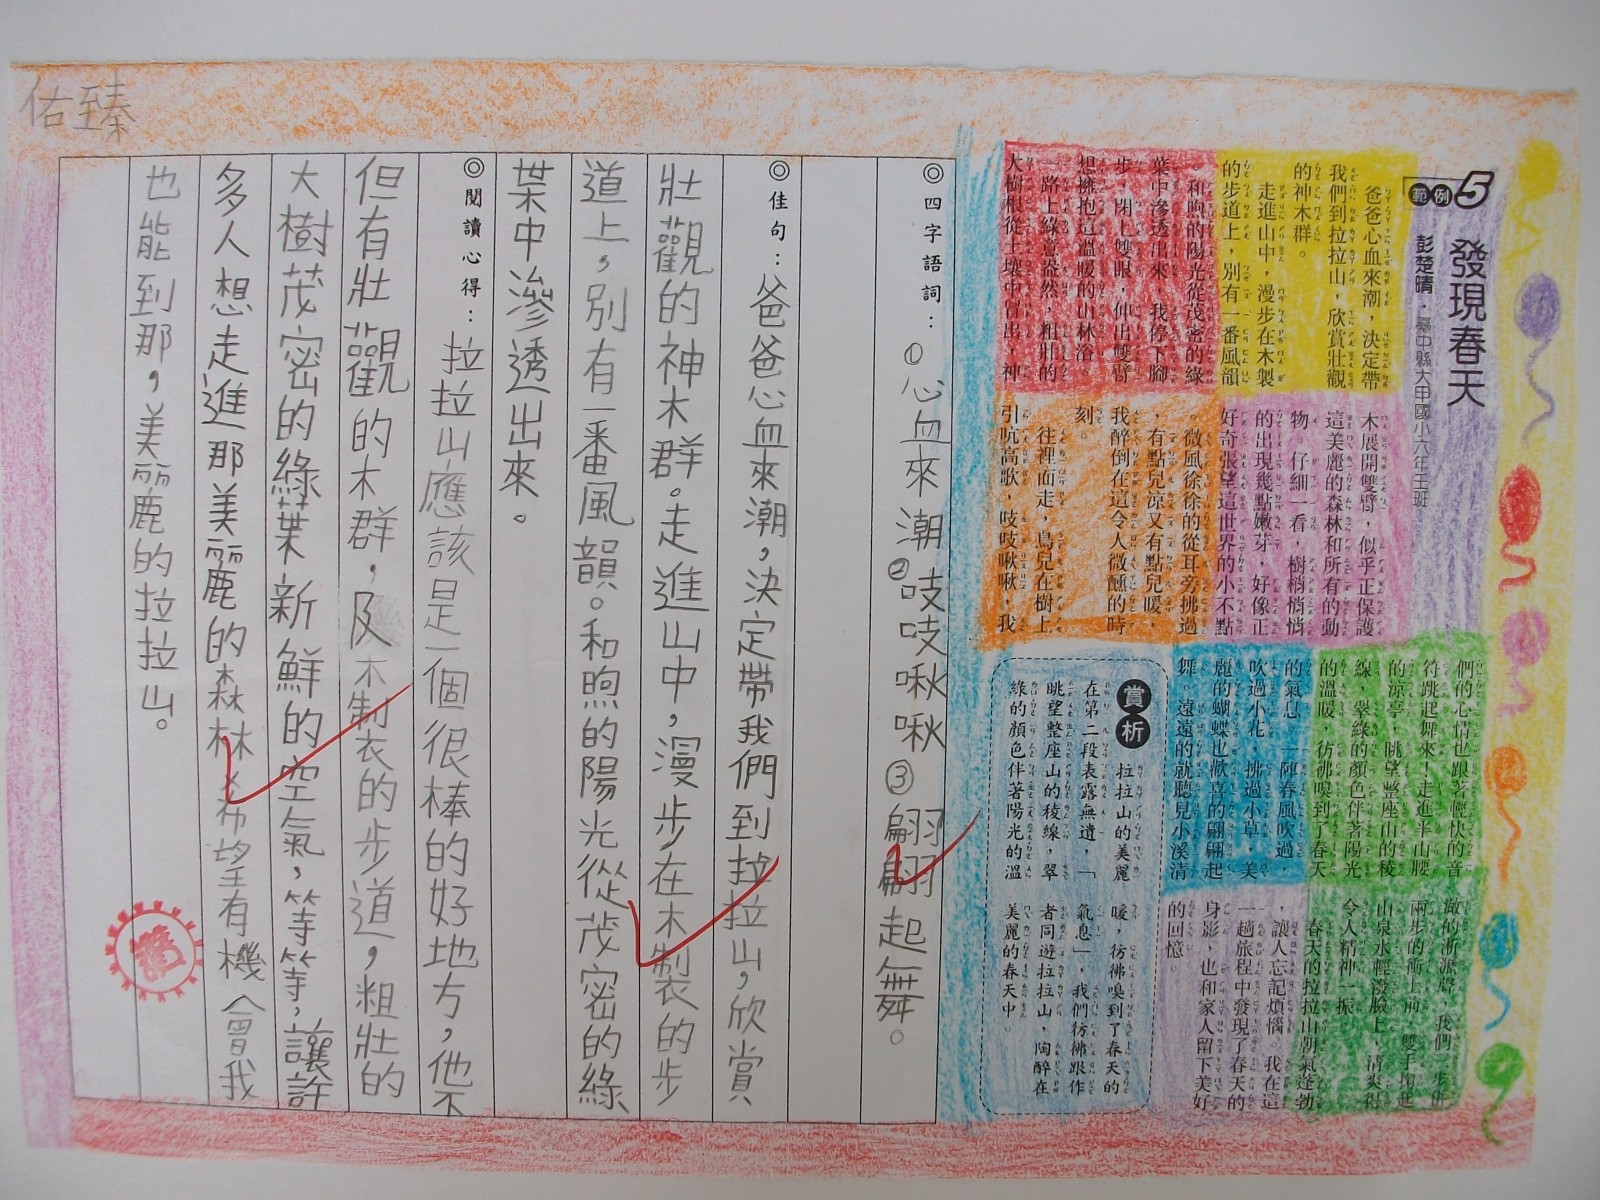 佑至臻
範例5
發現春天
彭楚晴・臺中縣大甲國小六年壬班
爸爸心血來潮，決定帶
我們到拉拉山，欣賞壯觀
的神木群。
走進山中，漫步在木製
的步道上，別有一番風韻
。和煦的陽光從茂密的綠
葉中滲透出來，我停下腳
步，閉上雙眼，伸出雙臂
想擁抱這溫暖的山林浴
。一路上綠意盎然，粗壯的
大樹根從土壤中冒出，神
木展開雙臂，似乎正保護
這美麗的森林和所有的動
物。仔細一看，樹梢悄悄
的出現幾點嫩芽，好像正
好奇張望這世界的小不點
。微風徐徐的從耳旁拂過
，有點兒涼又有點兒暖，
我醉倒在這令人微醺的時
刻。
往裡面走，鳥兒在樹上
引吭高歌，吱吱啾啾，我
們的心情也跟著輕快的音
符跳起舞來！走進半山腰
的涼亭，眺望整座山的稜
線，翠綠的顏色伴著陽光
的溫暖，彷彿嗅到了春天
的氣息。一陣春風吹過，
吹過小花，拂過小草，美
麗的蝴蝶也歡喜的翩翩起
舞。遠遠的就聽見小溪清
澈的淅瀝聲，我們三步併
兩步的衝上前，雙手掬起
山泉水輕潑臉上，清爽得
令人精神一振。
春天的拉拉山朝氣蓬勃
，讓人忘記煩惱。我在這
一趟旅程中發現了春天的
身影，也和家人留下美好
的回憶。
賞析
拉拉山的美麗
在第二段表露無遺，「
眺望整座山的稜線，翠
綠的顏色伴著陽光的溫
暖，彷彿嗅到了春天的
氣息」，我們彷彿跟作
者同遊拉拉山，陶醉在
美麗的春天中。
◎四字語詞：①心血來潮②吱吱啾啾③翩翩起舞。
◎佳句：爸爸心血來潮，決定帶我們到拉拉山，欣賞
壯觀的神木群。走進山中，漫步在木製的步
道上，別有一番風韻。和煦的陽光從茂密的綠
葉中滲透出來。
◎閱讀心得：拉拉山應該是一個很棒的好地方，他不
但有壯觀的木群，及木制衣的步道，粗壯的
大樹茂密的綠葉新鮮的空氣，等等，讓許
多人想走進那美麗的森林希望有機會我
也能到那，美麗的拉拉山。